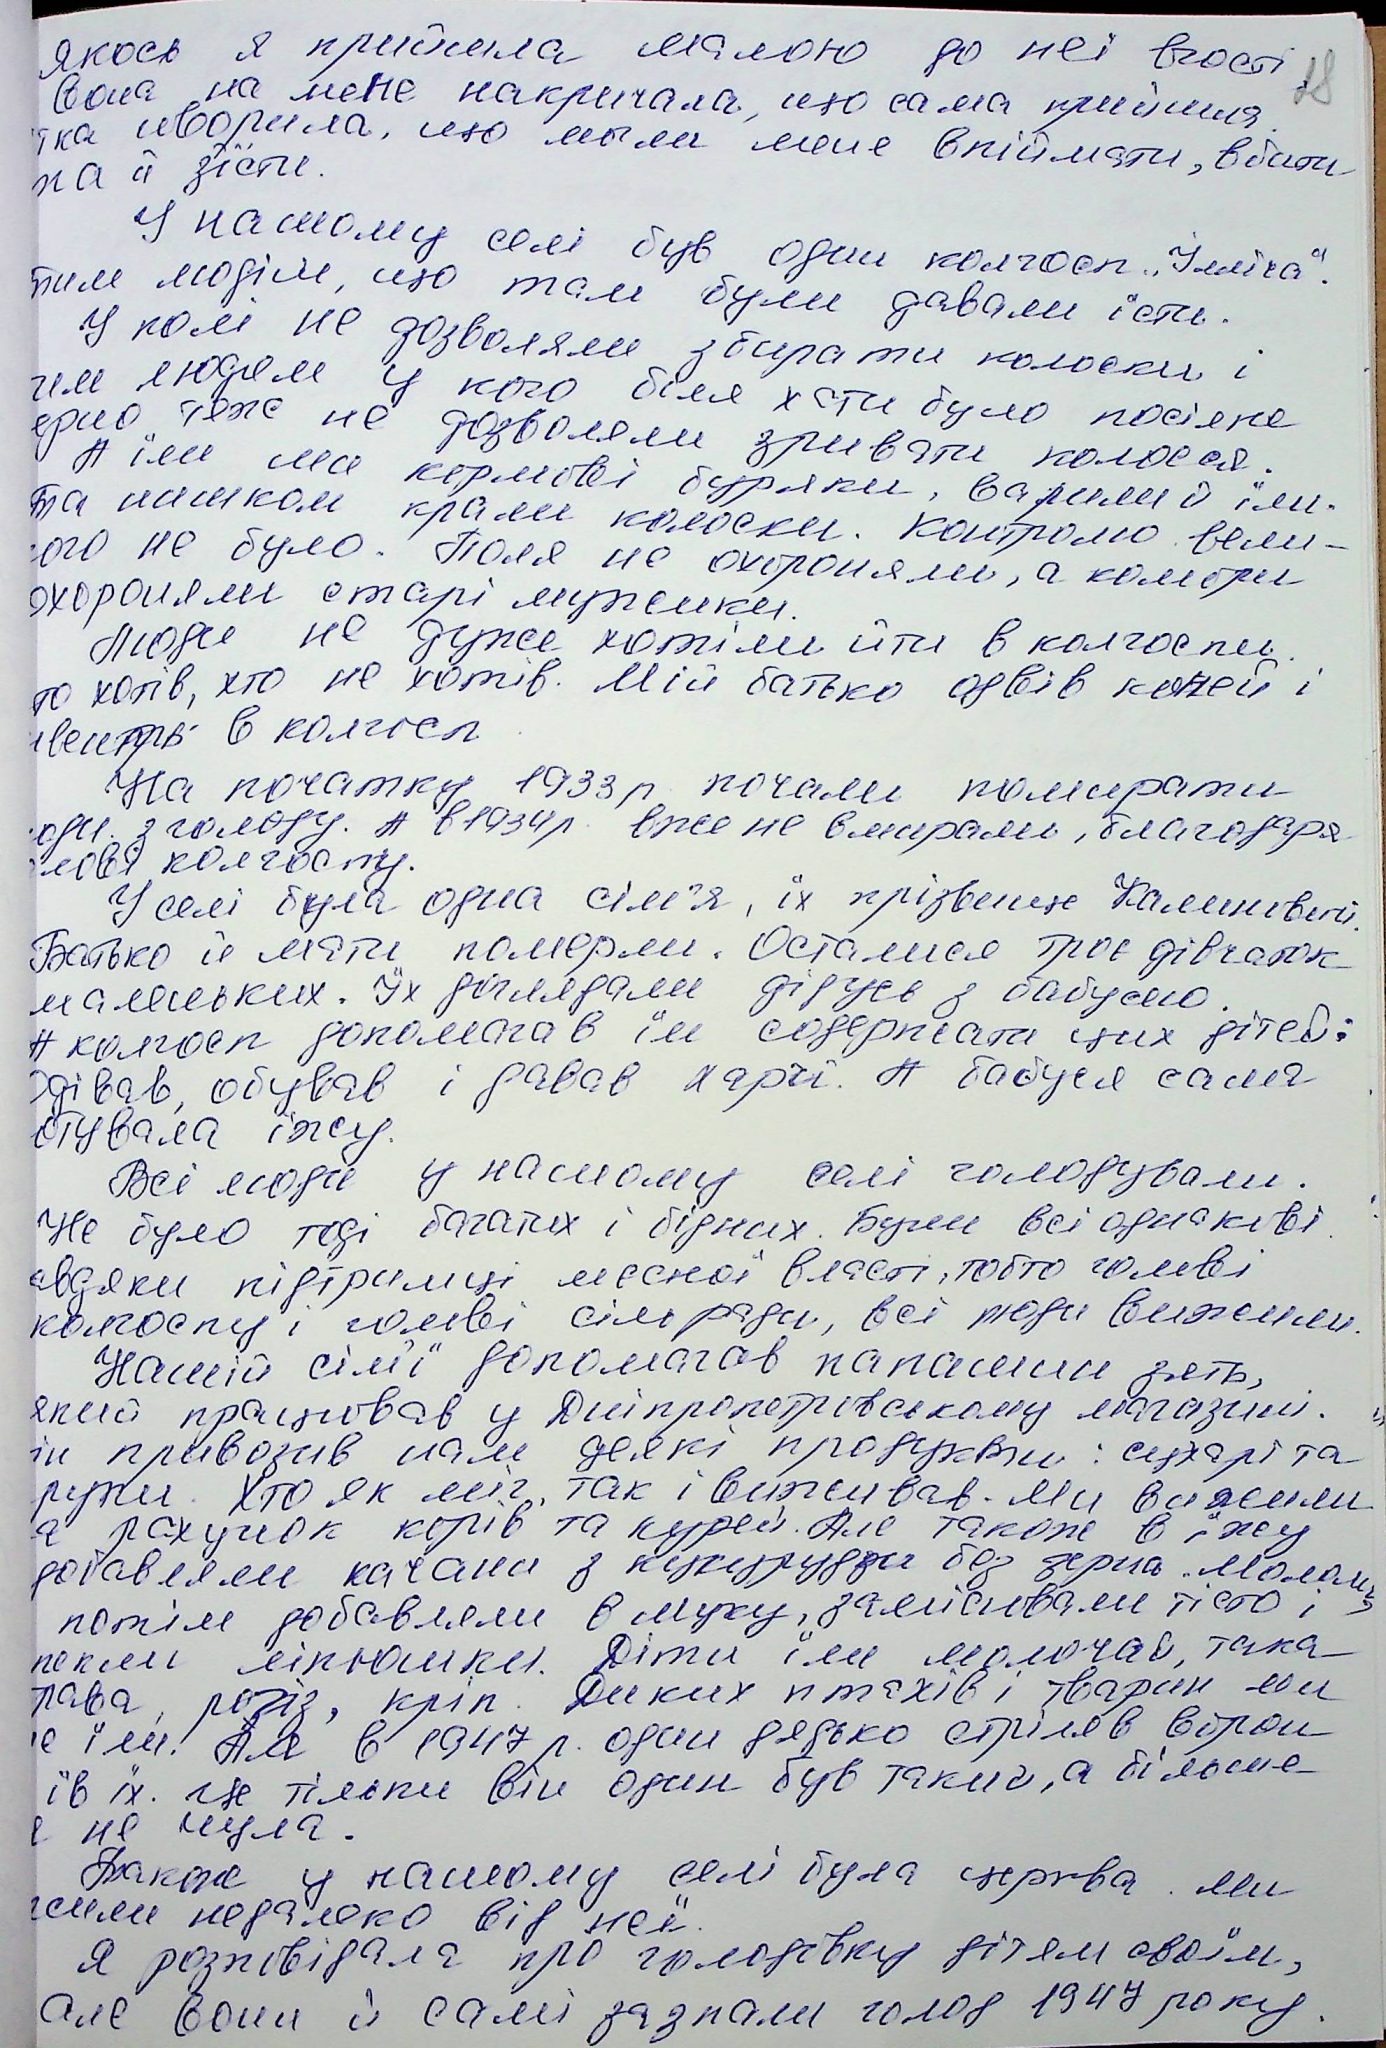 якось я прийшла малою до неї вгості 18
Вона на мене накричала, що сама прийшла.
тка иворила, що мыли мене впіймати, вбити
на й зїсти.
У нашому селі був один колгосп „Ілліча".
тим людім, що там були давали їсти.
У полі не дозволяли збирати колоски і
тим людям у кого біля хати було посіяне
ерно теже не дозволяли зривати колосся.
А їли ми кормові буряки, варили й їли.
та нишком крали колоски. Контролю вели-
ого не було. Поля не охороняли, а комори
охороняли старі мужики.
Люди не дуже хотіли йти в колгоспи.
то хотів, хто не хотів. Мій батько одвів коней і
в колгосп.
На початку 1933 р. почали помирати
юди з голоду. А в 1934 р. вже не вмирали, благодаря
лові колгоспу.
У селі була одна сім'я, їх прізвище Калинівені.
Батько й мати померли. Осталися троє дівчаток
маленьких. Їх доглядали дідусь з бабусею.
А колгосп допомагав їм содержати цих дітей:
Одівав, обував і давав харчі. А бабуся сама
отувала їжу.
Всі люди у нашому селі голодували.
Не було тоді багатих і бідних. Були всі однакові.
авдяки підтримці месної власті, тобто голові
колгоспу і голові сільради, всі люди вижили.
Нашій сім'ї допомагав папашин зять,
який працював у Дніпропетровському магазині.
ін привозив нам деякі продукти: сухарі та
рупи. Хто як міг, так і виживав. Ми вижили
а рахунок корів та курей. Але також в їжу
добавляли качани з кукурудзи без зерна. Мололи
потім добавляли в муку, замішували тісто і
пекли ліпюшки. Діти їли молочай, така
рава, рогіз, кріп. Диких птахів і тварин ми
е їли. Але в 1947 р. один дядько стріляв ворон
їв їх. Це тільки він один був такий, а більше
я не чула.
Також у нашому селі була церква. Ми
жили недалеко від неї.
Я розповідала про голодовку дітям своїм,
але вони й самі зазнали голод 1947 року.